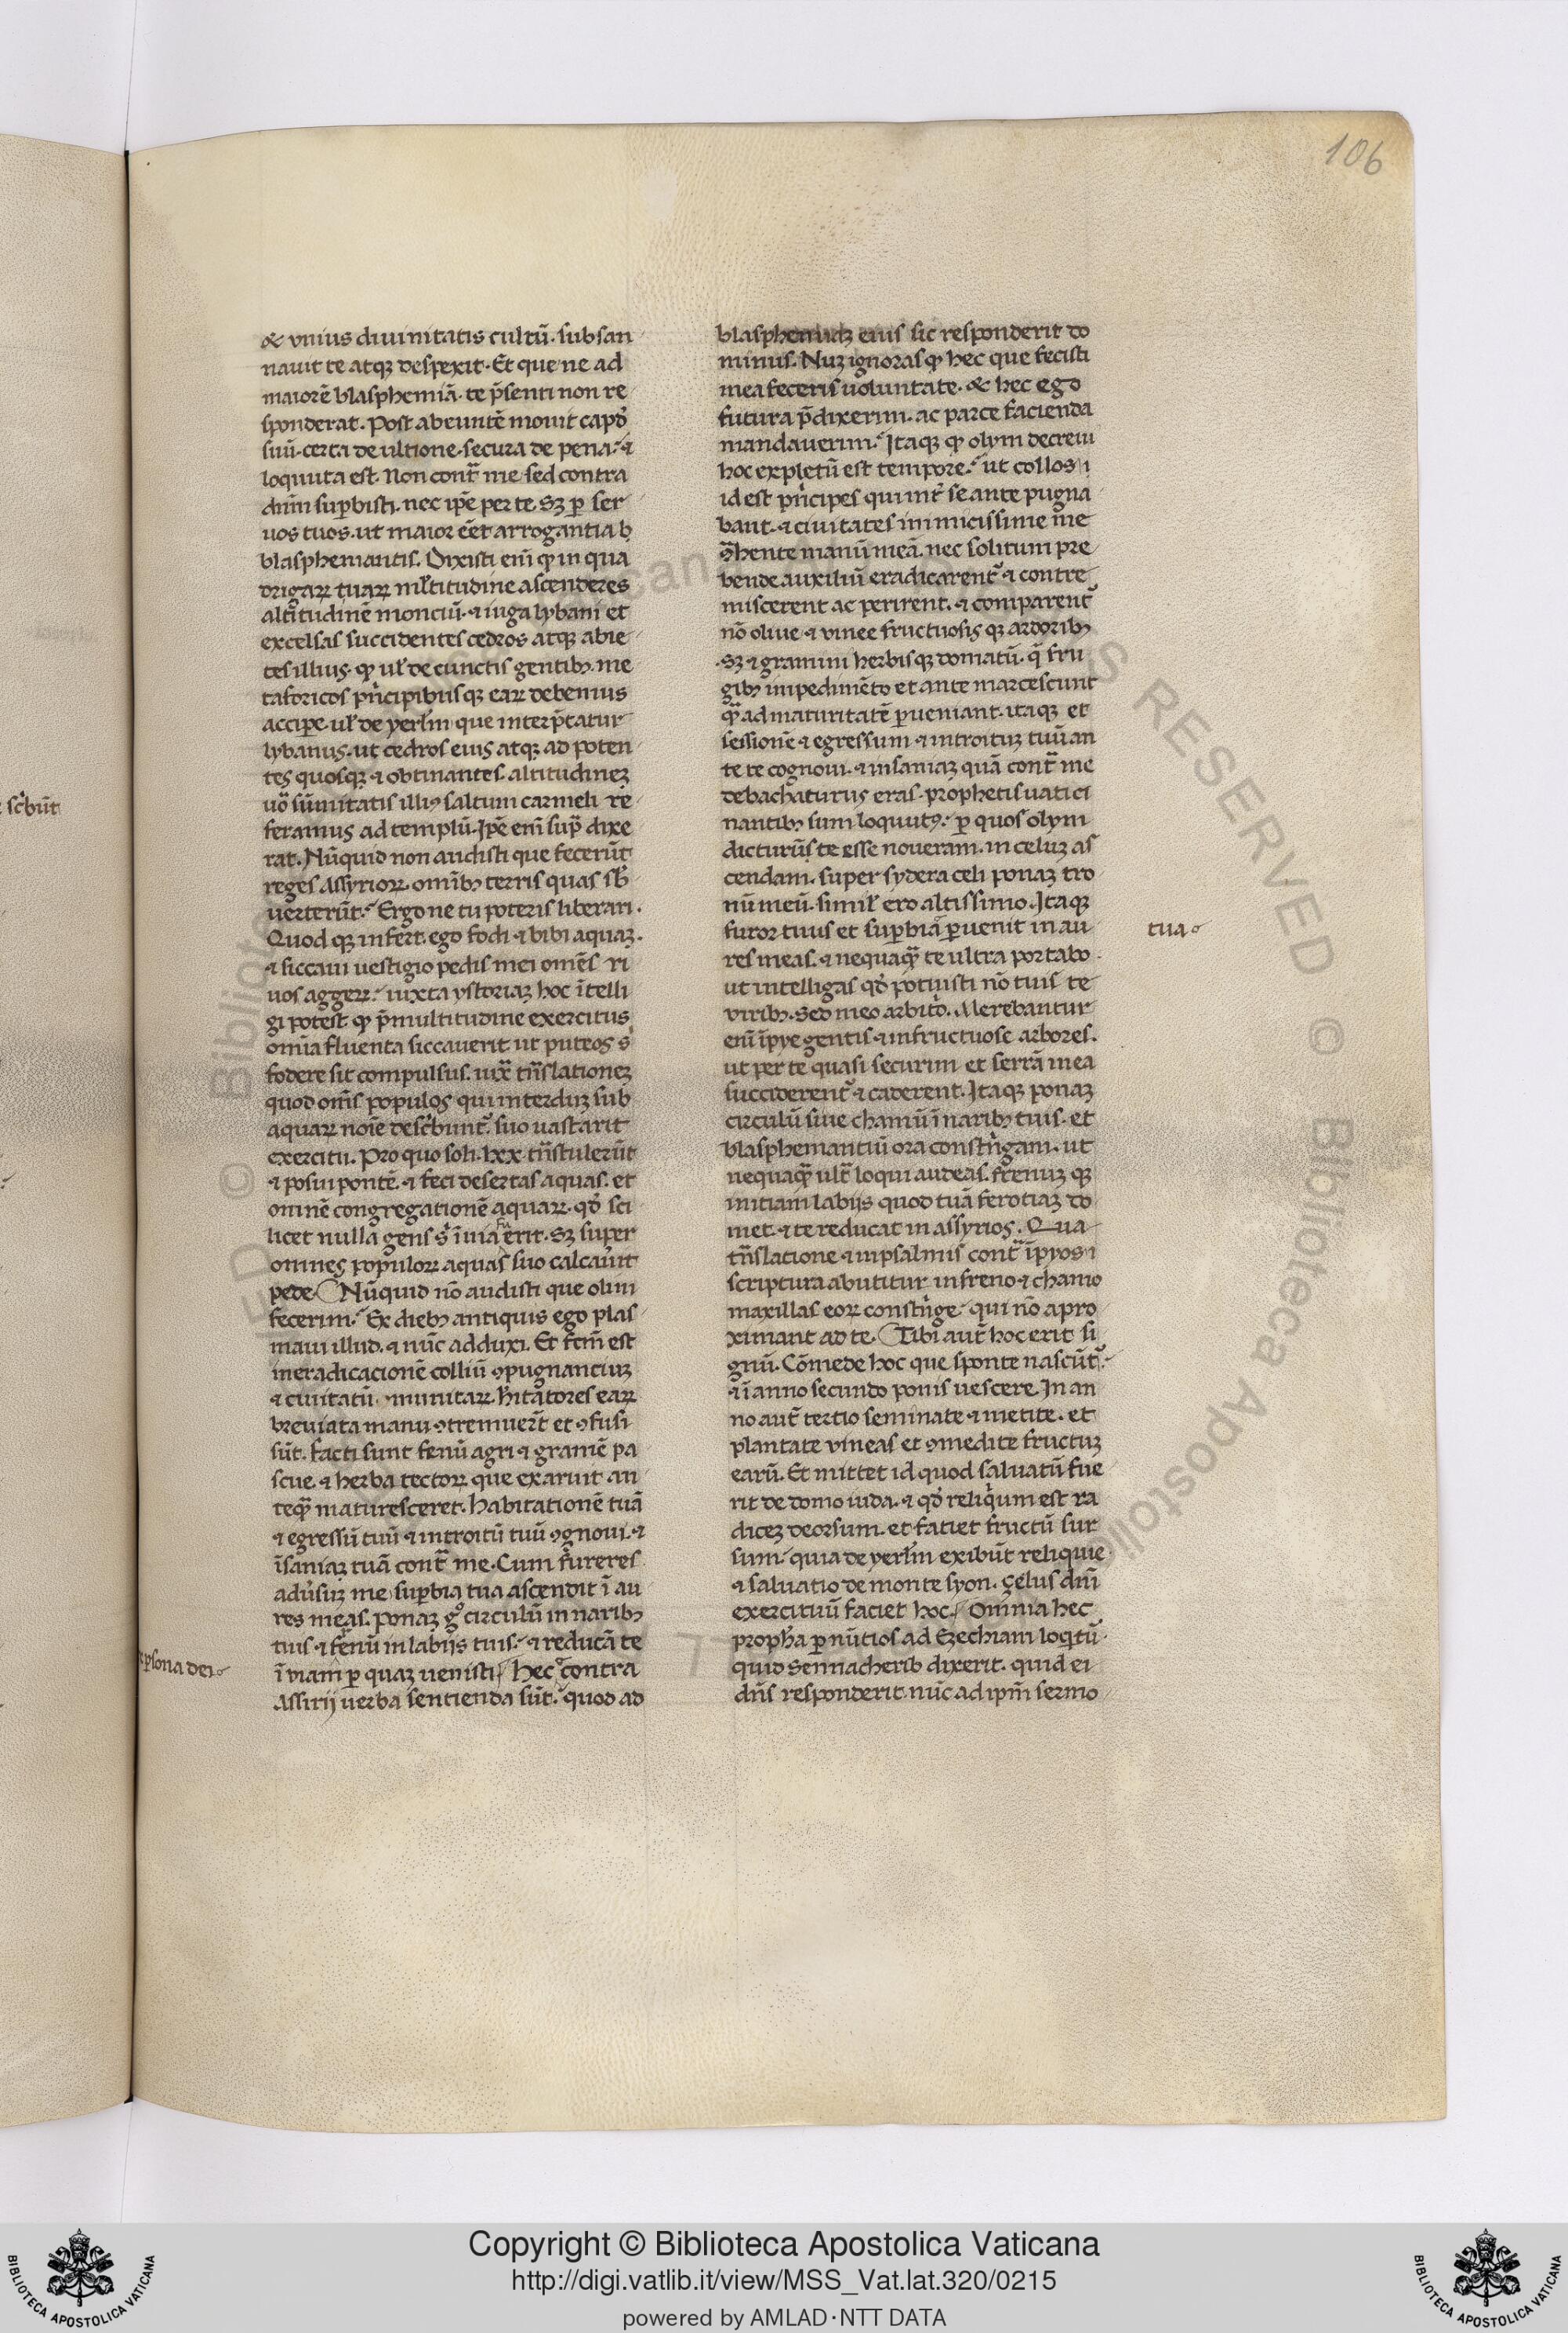 106
& unius divinitatis cultū. subsan
navit te atqꝫ despexit. Et que ne ad
maiorē blasphemiā. te p̄senti non re
sponderat. Post abeuntē movit cap̄d
suū. certa de ultione. secura de pena. ⁊
loquuta est. Non cont̄ me sed contra
dn̄m suꝑbisti. nec ip̄e per te. Sꝫ ꝑ ser
vos tuos. ut maior eēt arrogantia b
blasphemantis. Dixisti eni ꝙ in qua
drigaꝝ tuaꝝ ml̄titudine ascenderes
altitudinē monciū. ⁊ iuga lybani et
excelsas succidentes cedros atqꝫ abie
tes illius. ꝙ ul̄ de cunctis gentibꝫ. me
taforicos pn̄cipibusqꝫ eaꝝ debemus
accipe. ul̄ de yerl̄m que interp̄tatur
lybanus. ut cedros eius atqꝫ ad poten
tes quosqꝫ ⁊ obtinantes. altitudineꝫ
uō sūmitatis illiꝰ saltum carmeli re
feramus ad templū. Ip̄e eni sup̄ dixe
rat. Nūquid non audisti que fecerūt
reges Assyrioꝝ. omībꝫ terris quas sb̄
verterūt. Ergo ne tu poteris liberari.
Quod qꝫ infert. ego fodi ⁊ bibi aquaꝫ.
⁊ siccavi vestigio pedis mei omēs ri
vos aggeꝝ. iuxta ystoriaꝫ hoc ītelli
gi potest ꝙ p̄ multitudine exercitus
omīa fluenta siccaverit ut puteos s̄
fodere sit compulsus. iux̄ tn̄slationeꝫ
quod om̄s populos qui interduꝫ sub
aquaꝝ noīe desc̄bunt᷑. suo vastarit
exercitu. Pro quo soli. lxx. tn̄stulerūt
⁊ posui pontē. ⁊ feci desertas aquas. et
omnē congregationē aquaꝝ. qd̄ sci
licet nulla gens s̄ īvia fu erit. Sꝫ super
omnes populoꝝ aquas suo calcav̄it
pede. Nūquid nō audisti que olim
fecerim. Ex diebꝫ antiquis ego plas
mavi illud. ⁊ nūc adduxi. Et fc̄m est
in eradicacionē colliū ꝯpugnanciuꝫ
⁊ civitatū munitaꝝ. h̄itatores eaꝝ
breviata manu ꝯtremuer̄t et ꝯfusi
sūt. facti sunt fenū agri ⁊ gramē pa
scue. ⁊ herba tectoꝝ que exaruit an
teqꝫ maturesceret. Habitationē tuā
⁊ egressū tuū ⁊ introitū tuū ꝯgnovi. ⁊
īsaniaꝫ tuā cont̄ me. Cum fureres
adv̄suꝫ me suꝑbia tua ascendit ī au
res meas. Ponaꝫ gͦ circulū in naribꝫ
tuis ⁊ frenū in labijs tuis. ⁊ reducā te
ī viam ꝑ quaꝫ venisti. Hec contra
Assirij verba sentienda sūt. quod ad
ꝑsona dei
blasphemiaꝫ eius sic responderit do
minus. Nuꝫ ignoras ꝙ hec que fecisti
mea feceris voluntate. & hec ego
futura p̄dixerim. ac parce facienda
mandaverim. Itaqꝫ ꝙ olym decreui
hoc expletū est tempore. ut collos i
id est pn̄cipes qui int̄ se ante pugna
bant. ⁊ civitates inimicissime me
ꝯ̄hente manū meā. nec solitum pre
bende auxiliū eradicarent᷑ ⁊ contre
miscerent ac perirent. ⁊ comparent᷑
nō olive ⁊ vinee fructuosisqꝫ arboribꝫ
Sꝫ ⁊ gramini herbisqꝫ domatū. q̄ fru
gibꝫ impedimēto et ante marcescunt
qꝫ ad maturitatē ꝑveniant. itaqꝫ et
sessionē ⁊ egressum ⁊ introituꝫ tuū an
te te cognovi. ⁊ insaniaꝫ quā cont̄ me
debach̄aturus eras. prophetis vatici
nantibꝫ sum loquutꝰ. ꝑ quos olym
dicturūs te esse noveram. in celuꝫ as
cendam. super sydera celi ponaꝫ tro
nū meū. simil̄ ero altissimo. Itaqꝫ
furor tuus et suꝑbiā ꝑvenit in au
res meas. ⁊ nequaqꝫ te ultra portabo
ut intelligas qd̄ potuisti nō tuis te
viribꝫ. Sed meo arbitō. Merebantur
eni īpye gentis ⁊ infructuose arbores.
ut per te quasi securim et serrā mea
succiderent᷑ ⁊ caderent. Itaqꝫ ponaꝫ
circulū sive chamū ī naribꝫ tuis. et
blasphemantiū ora constn̄gam. ut
nequaqꝫ ult̄ loqui audeas. frenuꝫ qꝫ
initiam labijs quod tuā ferotiaꝫ do
met. ⁊ te reducat in assyrios. Qua
tn̄slatione ⁊ in psalmis cont̄ īpyos i
scriptura abutitur in freno ⁊ chamo
maxillas eoꝝ constn̄ge. qui nō apro
ximant ad te. Tibi aut̄ hoc erit si
gnū. Cōmede hoc que sponte nascūt᷑.
⁊ ī anno secundo pomis vescere. In an
no aut̄ tertio seminate ⁊ metite. et
plantate vineas et ꝯmedite fructuꝫ
earū. Et mittet id quod salvatū fue
rit de domo iuda. ⁊ qd̄ reliqūm est ra
diceꝫ deorsum. et fatiet fructū sur
sum. quia de yerl̄m exibūt reliquie
⁊ salvatio de monte syon. çelus dn̄i
exercituū faciet hoc. Omnia hec
propha ꝑ nūtios ad Ezechiam loqꝫtū.
quid Sennacherib dixerit. quid ei
dn̄s responderit. nūc ad ip̄m sermo
tua
sc̄būt
Copyright © Biblioteca Apostolica Vaticana
http://digi.vatlib.it/view/MSS_Vat.lat.320/0215
powered by AMLAD·NTT DATA
BIBLIOTECA APOSTOLICA VATICANA
BIBLIOTECA APOSTOLICA VATICANA